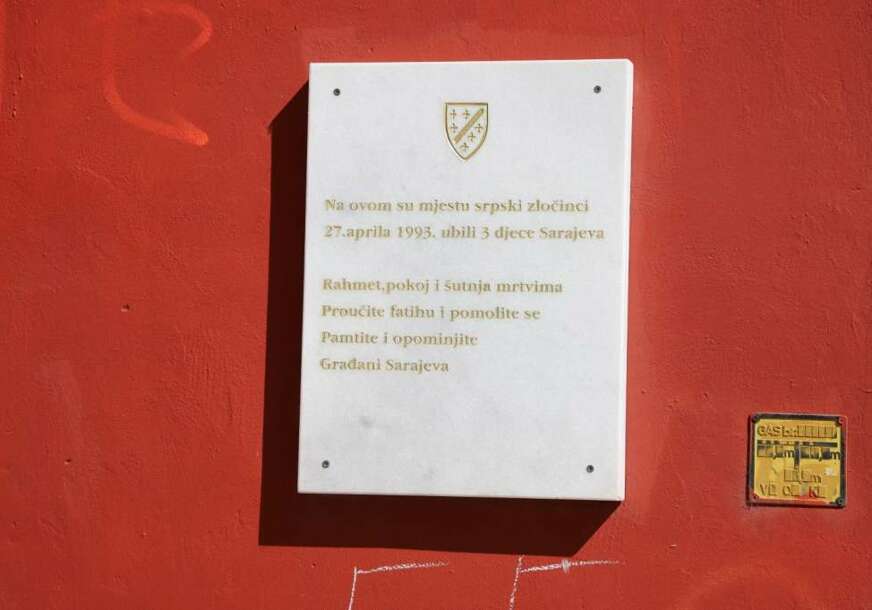 Na ovom su mjestu srpski zločinci
27.aprila 1993. ubili 3 djece Sarajeva
Rahmet,pokoj i šutnja mrtvima
Proučite fatihu i pomolite se
Pamtite i opominjite
Građani Sarajeva
GAS
m
m
m